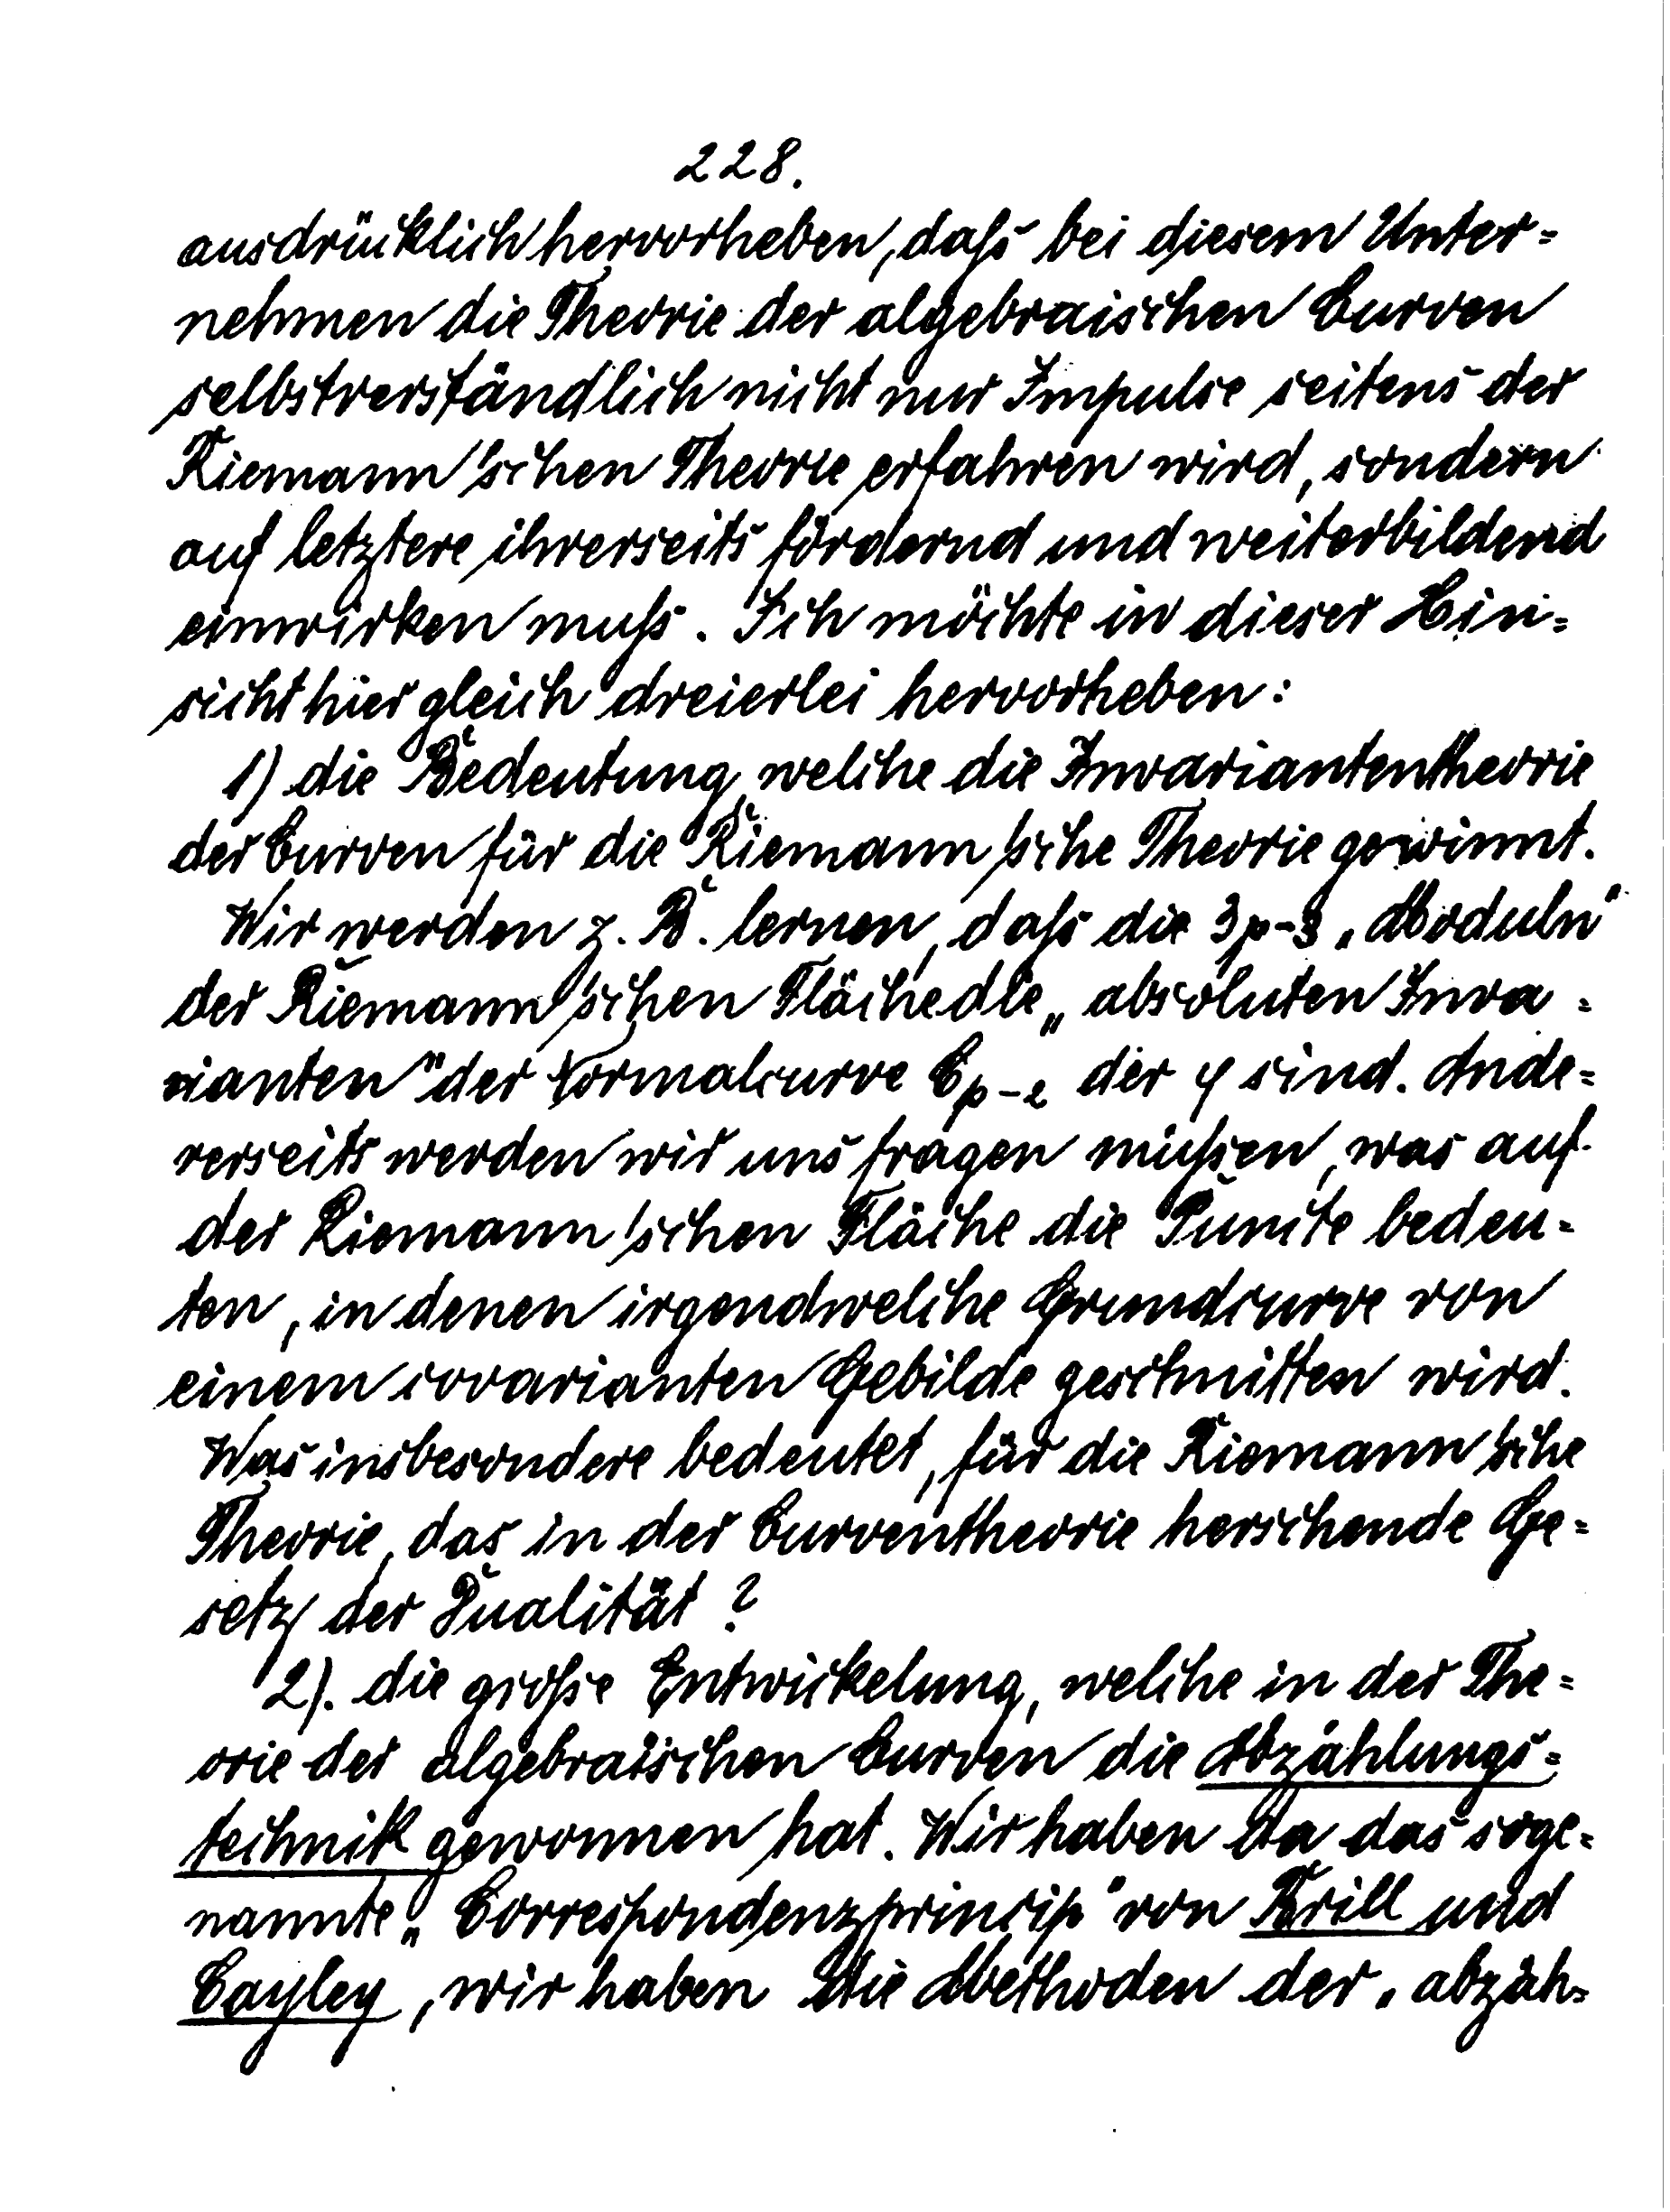 228.
ausdrücklich hervorheben, daſs bei diesem Unter=
nehmen die Theorie der algebraischen Curven
selbstverständlich nicht nur Impulse seitens der
Riemann'schen Theorie erfahren wird, sondern
auf letztere ihrerseits fördernd und weiterbildend
einwirken muſs. Ich möchte in dieser Hin=
sicht hier gleich dreierlei hervorheben:
1) die Bedeutung, welche die Invariantentheorie
der Curven für die Riemann'sche Theorie gewinnt.
Wir werden z. B. lernen, daſs die 3p-3 „Moduln“
der Riemann'schen Fläche die „absoluten Inva=
rianten“ der Normalcurve C_{p-2} der φ sind. Ande=
rerseits werden wir uns fragen müſsen, was auf
der Riemann'schen Fläche die Puncte bedeu=
ten, in denen irgendwelche Grundcurve von
einem covarianten Gebilde geschnitten wird.
Was insbesondere bedeutet, für die Riemann'sche
Theorie, das in der Curventheorie herschende Ge=
setz der Dualität?
2). die groſse Entwickelung, welche in der The=
orie der algebraischen Curven die Abzählungs=
technik gewonnen hat. Wir haben da das soge=
nannte „Correspondenzprincip“ von Brill und
Cayley, wir haben die Methoden der „abzäh=